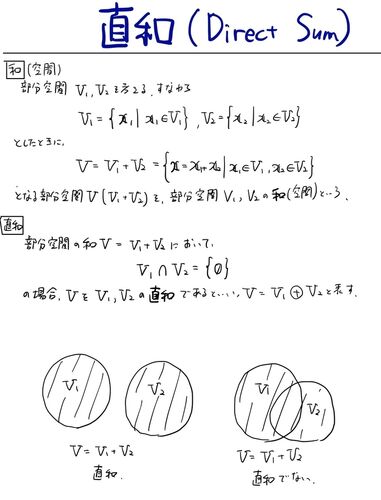 直和 (Direct Sum)
和 (空間)
部分空間 V₁, V₂を考える. すなわち
V₁ = { x₁ | x₁∈V₁ } , V₂ = { x₂ | x₂∈V₂ }
としたときに,
V = V₁ + V₂ = { x = x₁+x₂ | x₁∈V₁, x₂∈V₂ }
となる部分空間 V (V₁+V₂) を, 部分空間 V₁, V₂ の和(空間)という.
直和
部分空間の和 V = V₁+V₂ において,
V₁ ∩ V₂ = {0}
の場合, VをV₁, V₂の直和であるといい, V = V₁ ⊕ V₂と表す.
V₁ V₂ V₁ V₂
V = V₁ + V₂ V = V₁ + V₂
直和. 直和でない.